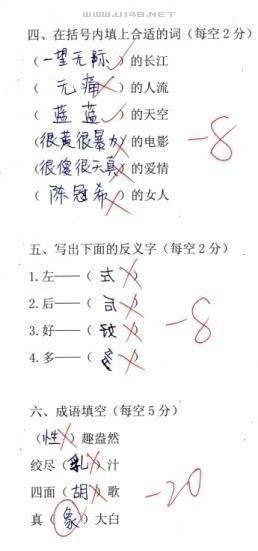 www.U148.NET
四、在括号内填上合适的词（每空2分）
（一望无际）的长江
（无痛）的人流
（蓝蓝）的天空
（很黄很暴力）的电影
（很傻很天真）的爱情
（陈冠希）的女人
-8
五、写出下面的反义字（每空2分）
1.左——（ ）
2.后——（ ）
3.好——（ ）
4.多——（ ）
-8
六、成语填空（每空5分）
（性）趣盎然
绞尽（乳）汁
四面（胡）歌
真（象）大白
-20